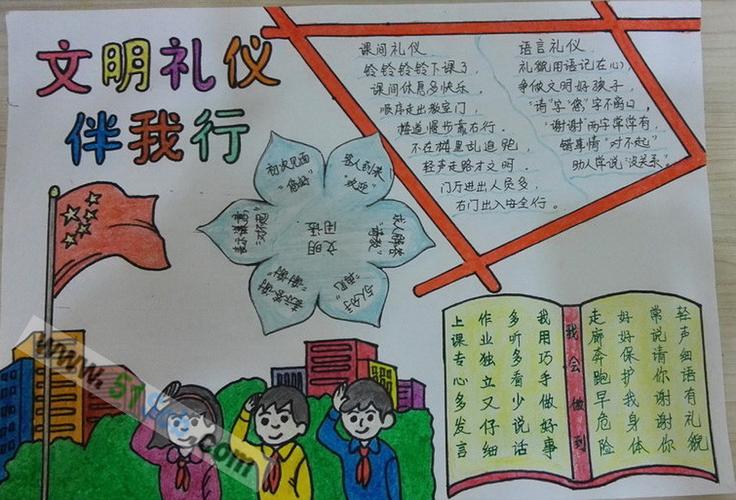 文明礼仪
伴我行
课间礼仪
铃铃铃铃下课了，
课间休息多快乐，
顺序走出教室门，
楼道慢步靠右行。
不在楼里乱追跑，
轻声走路才文明。
门厅进出人员多，
右门出入安全行。
语言礼仪
礼貌用语记在心，
争做文明好孩子，
“请”字“您”字不离口，
“谢谢”两字常常有，
错事情“对不起”
助人学说“没关系”。
初次见面
“您好”
客人到来
“欢迎”
求人解答
“请教”
与人分手
“再见”
表示答谢
“谢谢”
表示歉意
“对不起”
文明
用语
轻声细语有礼貌
常说请你谢谢你
好好保护我身体
走廊奔跑早危险
我会做到
我用巧手做好事
多听多看少说话
作业独立又仔细
上课专心多发言